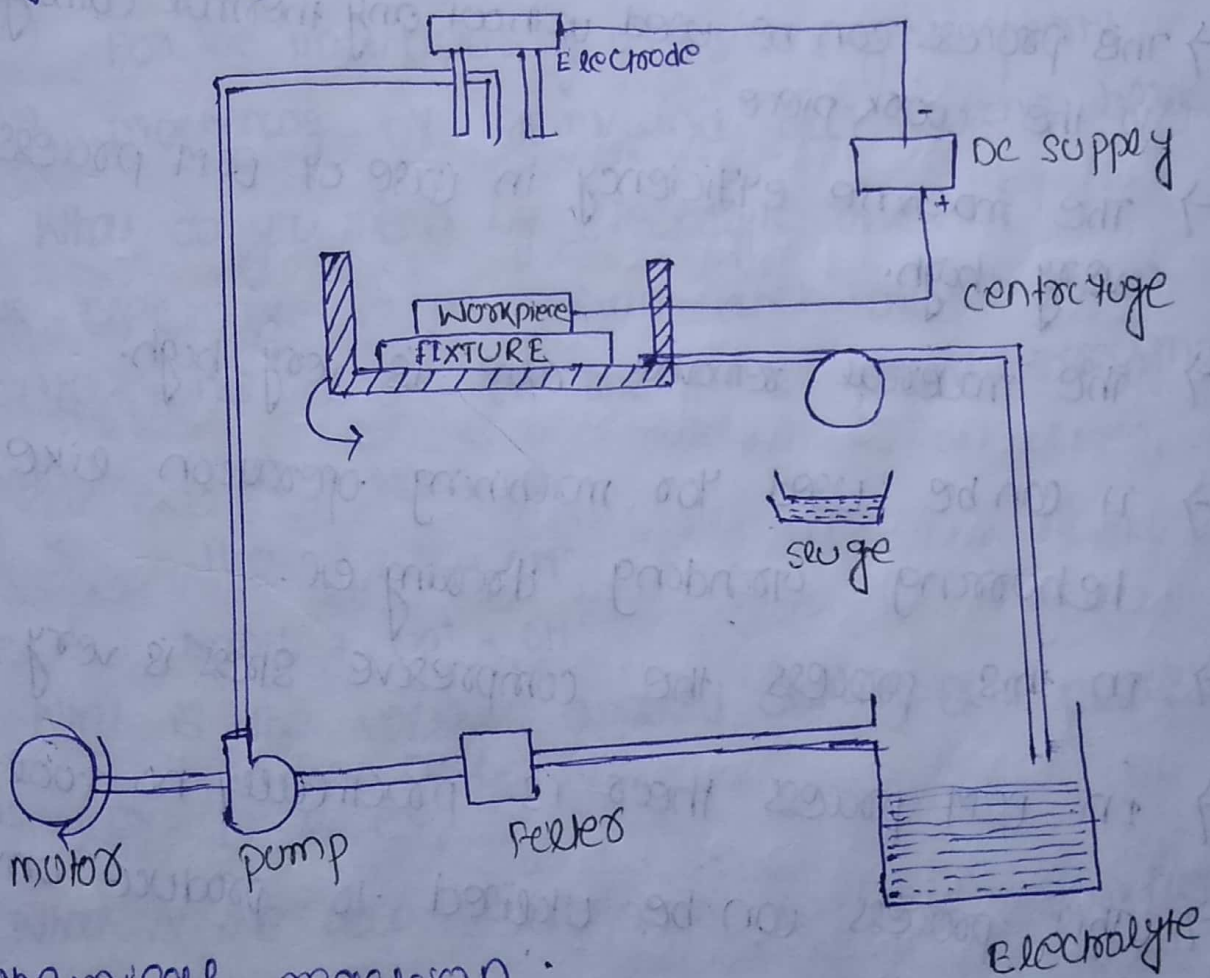 Electrode
-
DC supply
+
centrifuge
Workpiece
FIXTURE
sluge
Felter
motor
pump
Electrolyte